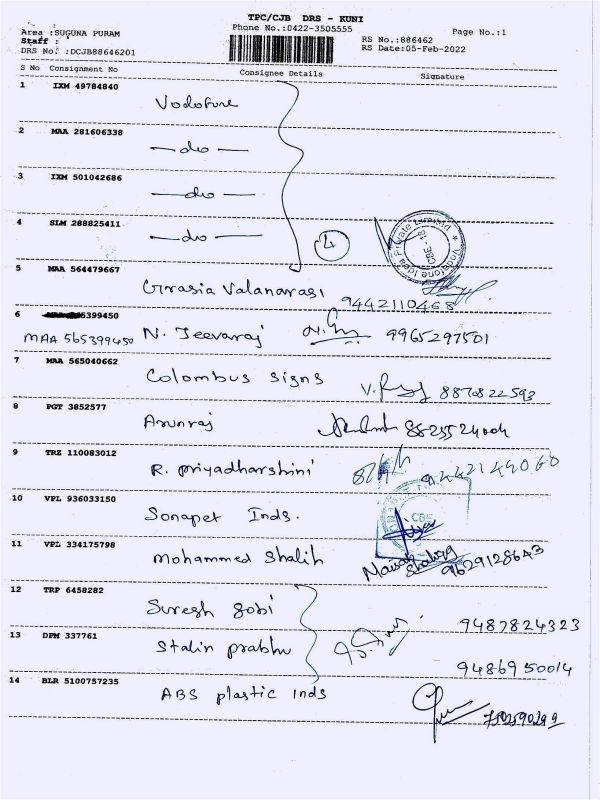 TPC/CJB DRS - KUNI
Phone No.:0422-3505555
Area :SUGUNA PURAM
Staff :
DRS No. :DCJB88646201
RS No.:886462
RS Date:05-Feb-2022
Page No.:1
S No Consignment No Consignee Details Signature
1 IXM 49784840
Vodafone
2 MAA 281606338
— do —
3 IXM 501042686
— do —
4 SLM 288825411
— do —
4
Vodafone Idea Private Limited
CBE - 18
5 MAA 564479667
Grasia Valanarasi 9442110468
6 5399450
MAA 565399450 N. Jeevaraj 9965297501
7 MAA 565040662
Colombus signs 8870822593
8 PGT 3852577
Arunraj
9 TRZ 110083012
R. Priyadharshini
10 VPL 936033150
Sonapet Inds.
CBE
11 VPL 334175798
Mohammed Shalih 9629128643
12 TRP 6458282
Suresh gobi 9487824323
13 DPM 337761
Stalin prabhu 9486950014
14 BLR 5100757235
ABS plastic inds